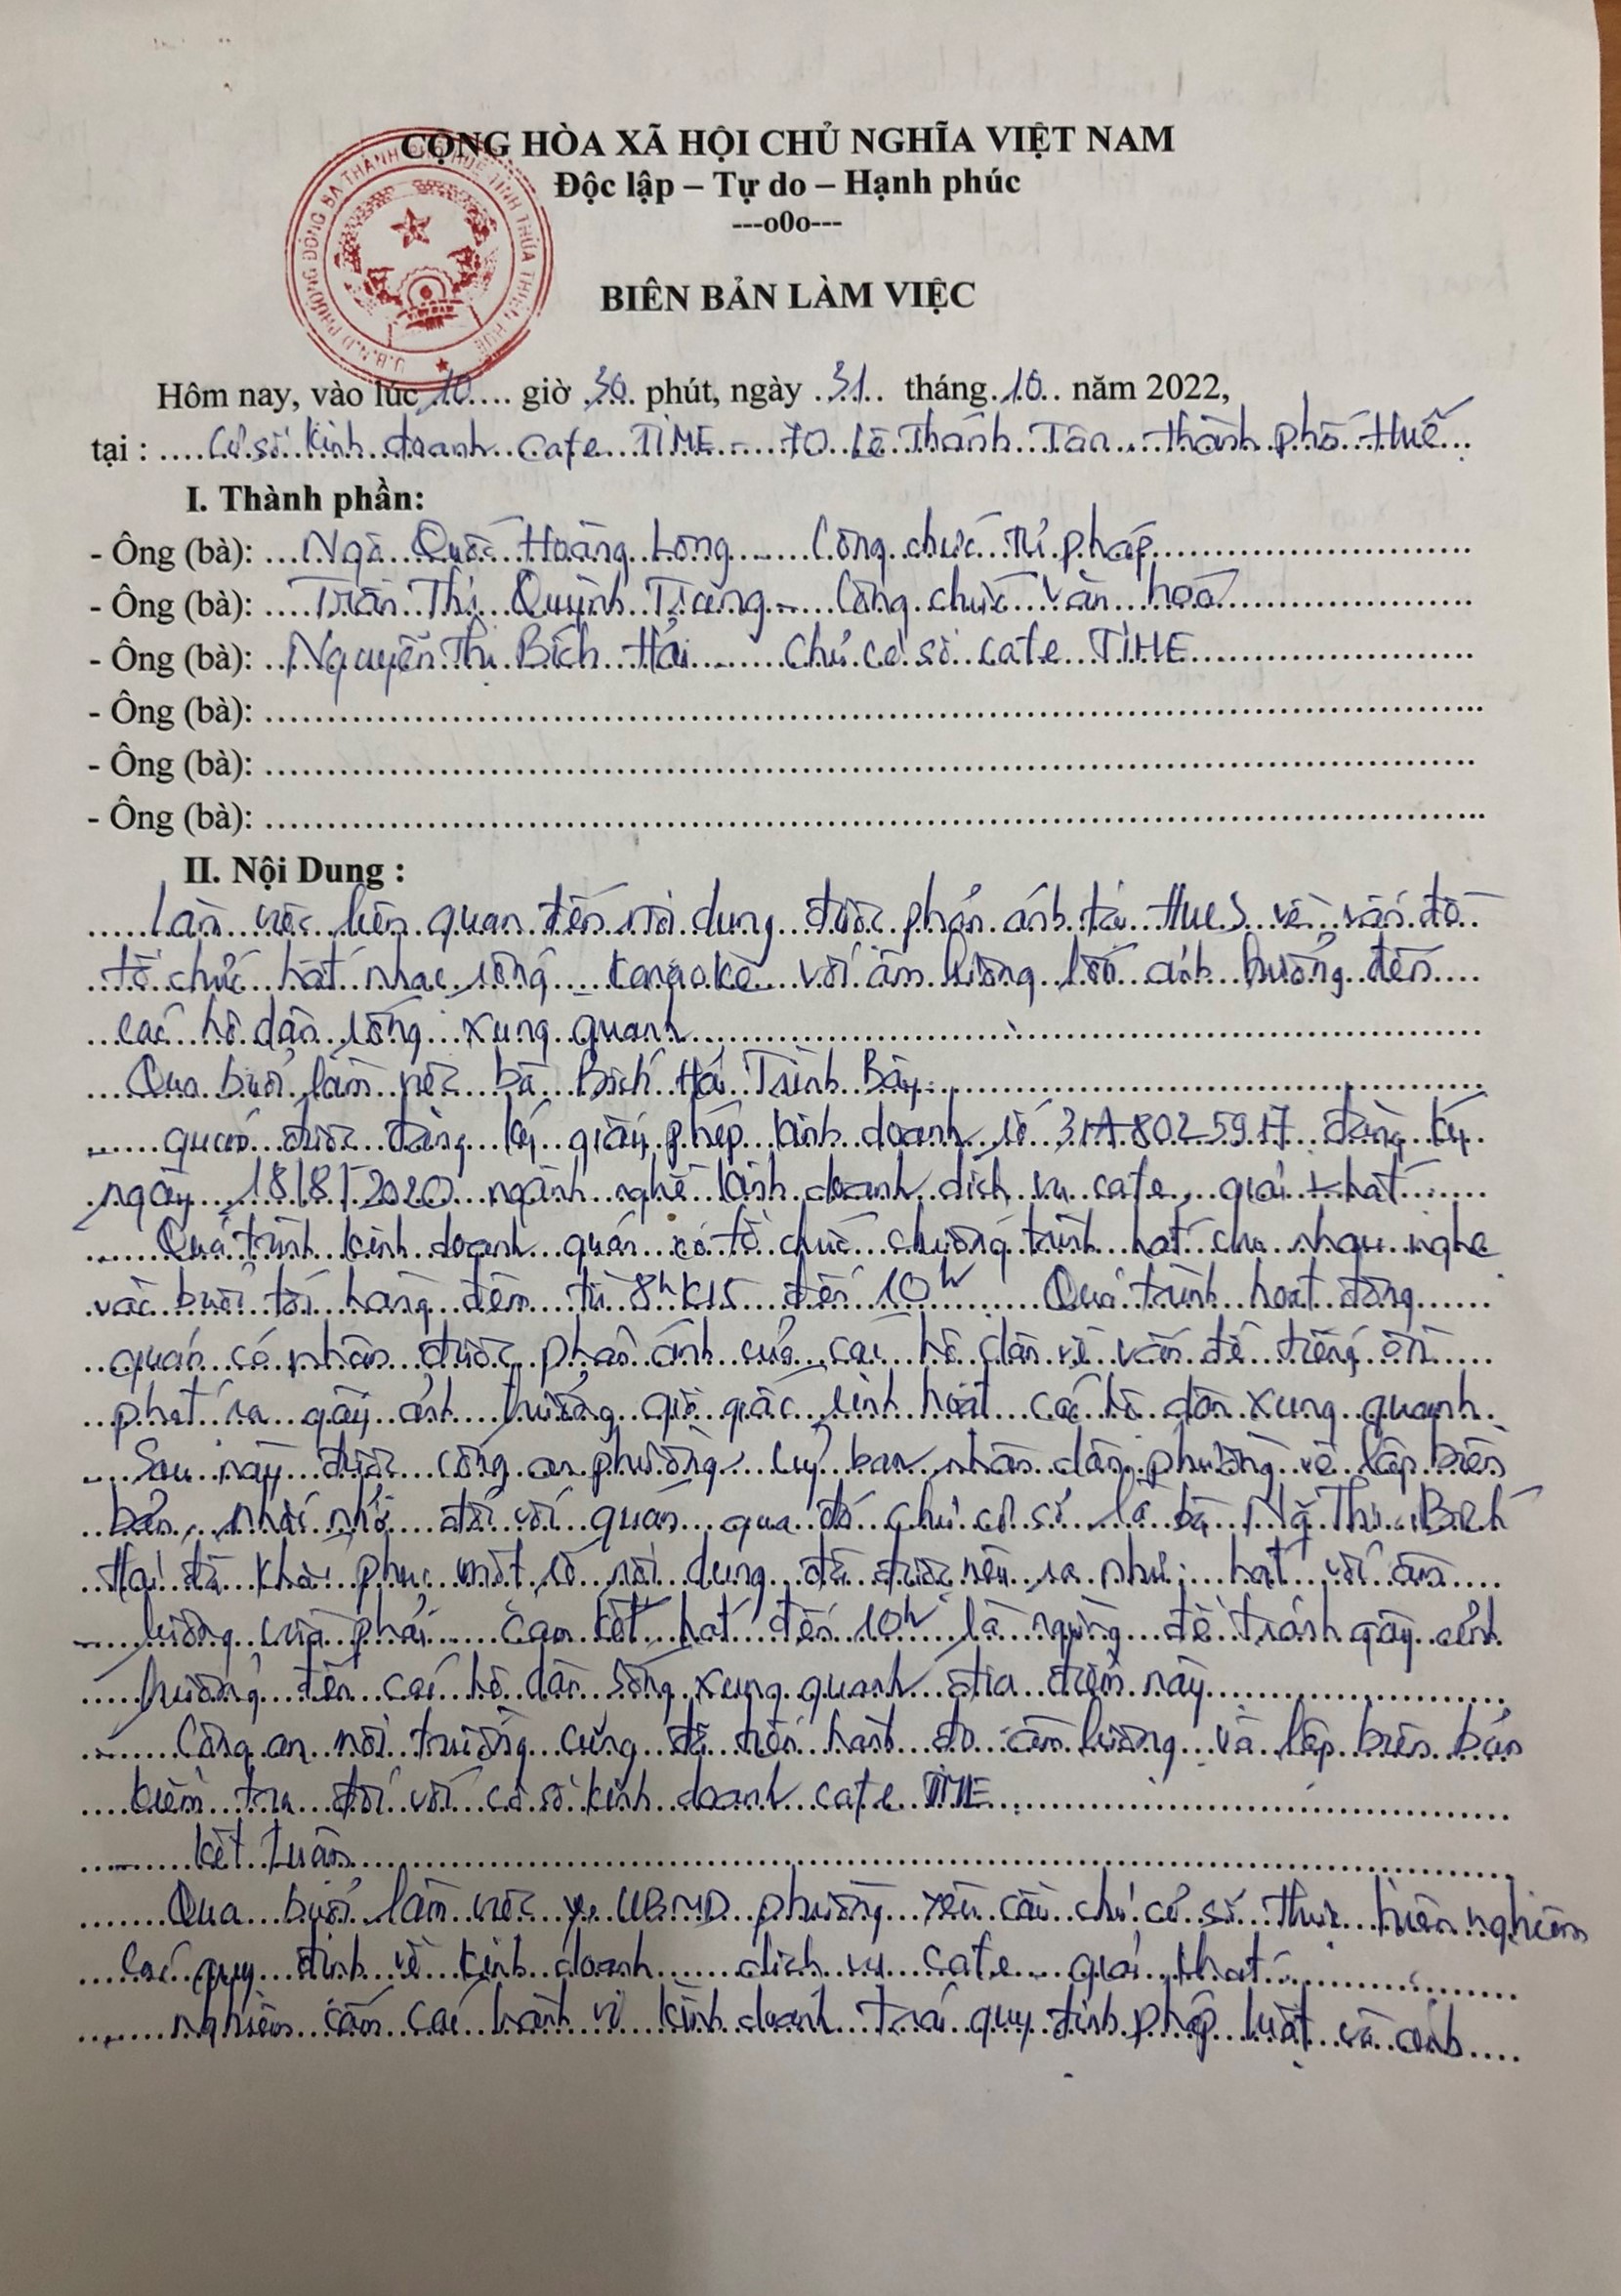 CỘNG HÒA XÃ HỘI CHỦ NGHĨA VIỆT NAM
Độc lập – Tự do – Hạnh phúc
---o0o---
U.B.N.D PHƯỜNG ĐÔNG BA THÀNH PHỐ HUẾ TỈNH THỪA THIÊN HUẾ
BIÊN BẢN LÀM VIỆC
Hôm nay, vào lúc 10 giờ 30 phút, ngày 31 tháng 10 năm 2022,
tại : Cơ sở kinh doanh cafe TIME - 70 Lê Thánh Tôn - thành phố Huế
I. Thành phần:
- Ông (bà): Ngô Quốc Hoàng Long - Công chức Tư pháp
- Ông (bà): Trần Thị Quỳnh Trang - Công chức Văn hoá
- Ông (bà): Nguyễn Thị Bích Hải - Chủ cơ sở cafe TIME
- Ông (bà):
- Ông (bà):
- Ông (bà):
II. Nội Dung :
Làm việc liên quan đến nội dung được phản ánh tại HueS về vấn đề
tổ chức hát nhạc sống - karaoke với âm lượng lớn ảnh hưởng đến
các hộ dân sống xung quanh
Qua buổi làm việc bà Bích Hải Trình Bày:
- quán được đăng ký giấy phép kinh doanh số 31A8025917 đăng ký
ngày 18/8/2020 ngành nghề kinh doanh dịch vụ cafe, giải khát
Quá trình kinh doanh quán có tổ chức chương trình hát cho nhau nghe
vào buổi tối hàng đêm từ 8h15 đến 10h Quá trình hoạt động
quán có nhận được phản ánh của các hộ dân về vấn đề tiếng ồn
phát ra gây ảnh hưởng giờ giấc sinh hoạt các hộ dân xung quanh.
- Sau này được công an phường, uỷ ban nhân dân phường về lập biên
bản, nhắc nhở đối với quán qua đó chủ cơ sở là bà Ng Thị Bích
Hải đã khắc phục một số nội dung đã được nêu ra như: hát với âm
lượng vừa phải - cam kết hát đến 10h là ngừng để tránh gây ảnh
hưởng đến các hộ dân sống xung quanh địa điểm này
- Công an môi trường cũng đã tiến hành đo âm lượng và lập biên bản
kiểm tra đối với cơ sở kinh doanh cafe TIME
- Kết Luận
Qua buổi làm việc UBND phường yêu cầu chủ cơ sở thực hiện nghiêm
các quy định về kinh doanh dịch vụ cafe - giải khát
- nghiêm cấm các hành vi kinh doanh trái quy định pháp luật và ảnh